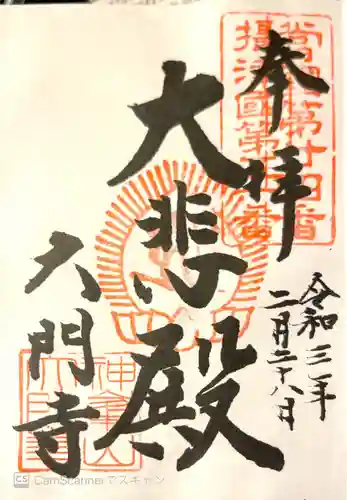 奉拝
大悲殿
大門寺
令和三年
二月二十八日
摂津国第四番
神峯山
大門寺
CS CamScannerでスキャン